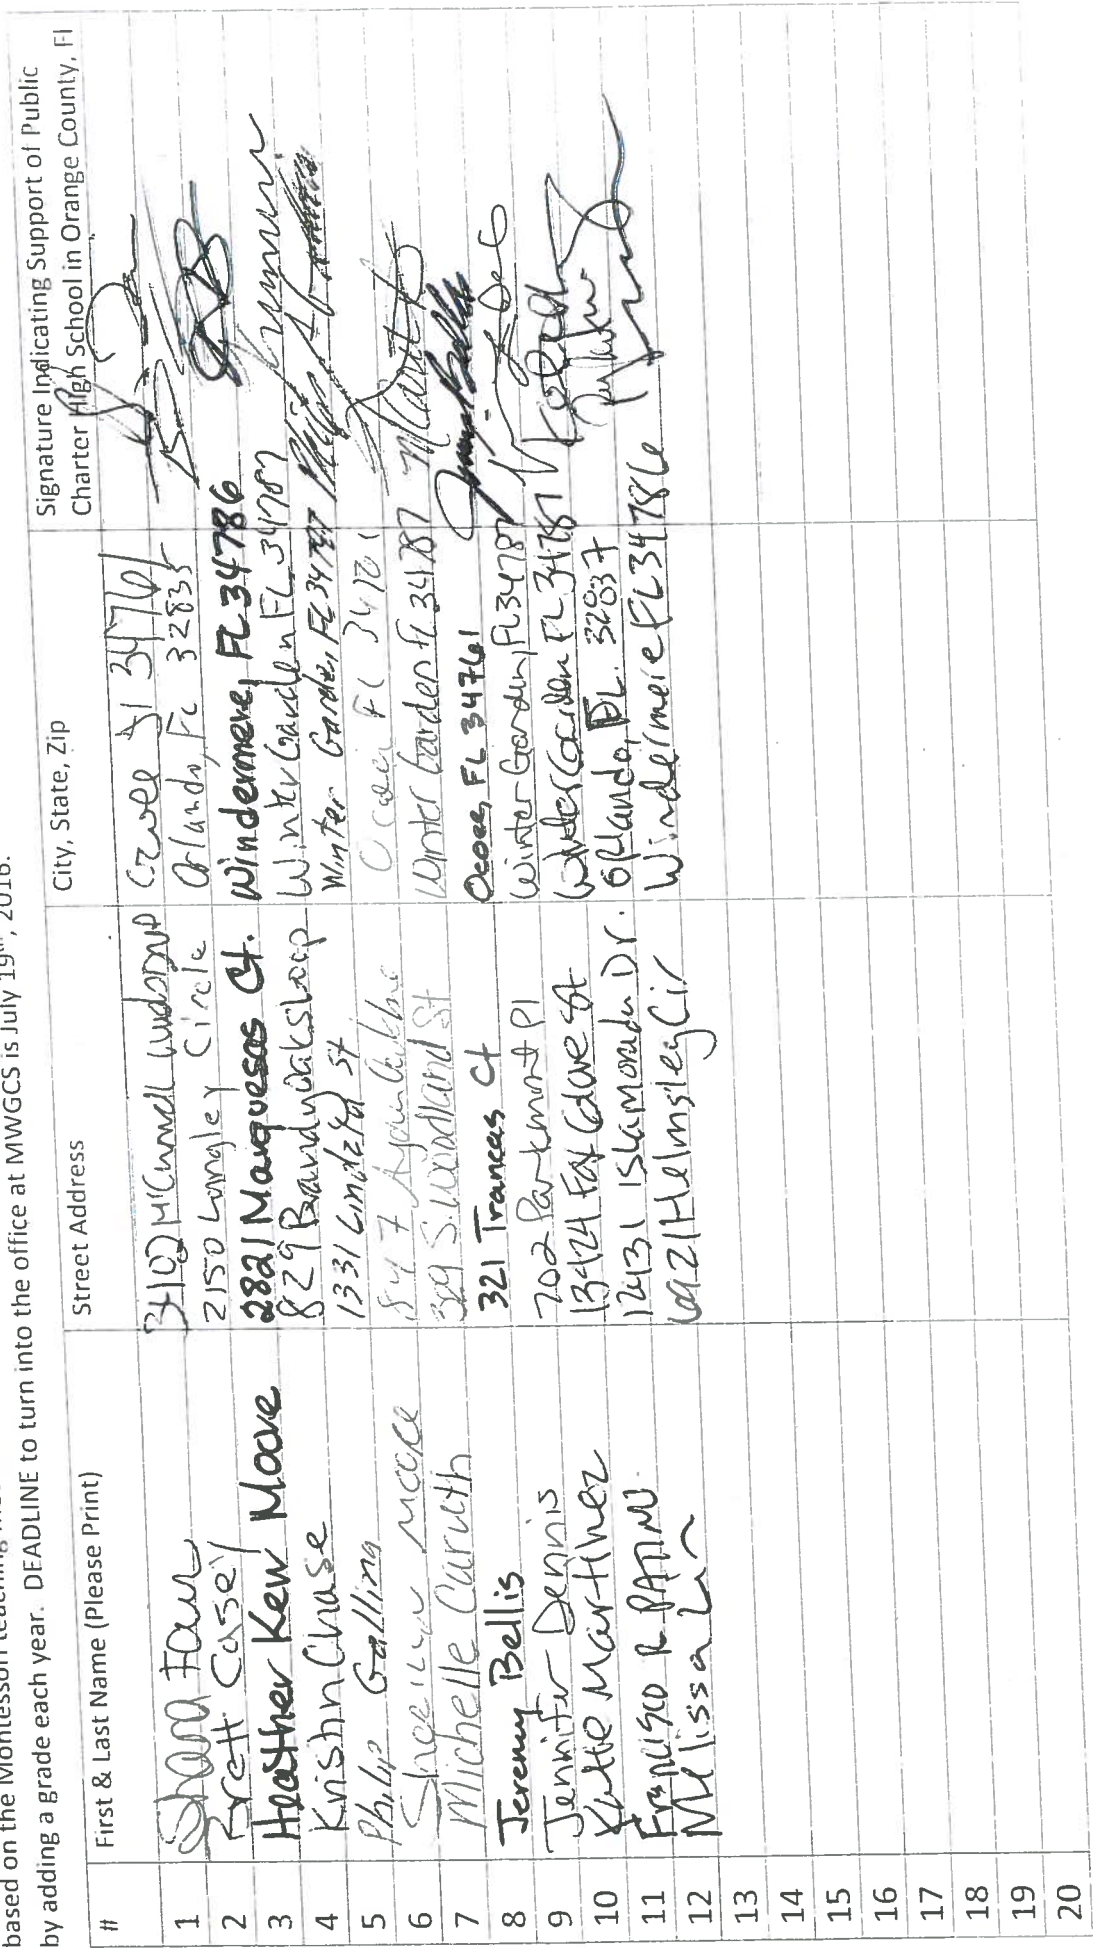 based on the Montessori teaching
by adding a grade each year. DEADLINE to turn into the office at MWGCS is July 19th, 2016.
# First & Last Name (Please Print) Street Address City, State, Zip Signature Indicating Support of Public Charter High School in Orange County, Fl
1 Shana 34761
2 Brett Casey 2150 Langley Circle Orlando, FL 32835
3 Heather Kew Moore 2821 Marquesas Ct. Windermere, FL 34786
4 Kristin Chase 829 Bandy Oaks Loop Winter Garden FL 34787
5 Philip Galling 1331 Lindzlu St Winter Garden, FL 34787
6 Moore FL
7 Michelle Caruth 329 S. Woodland St Winter Garden FL 34787
8 Jeremy Bellis 321 Trancas Ct Ocoee, FL 34761
9 Jennifer Dennis 702 Parkmont Pl Winter Garden, FL 34787
10 Katte Martinez 13424 Fox Glove St Winter Garden FL 34787
11 Francisco R PATINO 12431 Islamorada Dr. Orlando, FL. 32837
12 Melissa Lin 6921 Helmsley Cir Windermere FL 34786
13
14
15
16
17
18
19
20